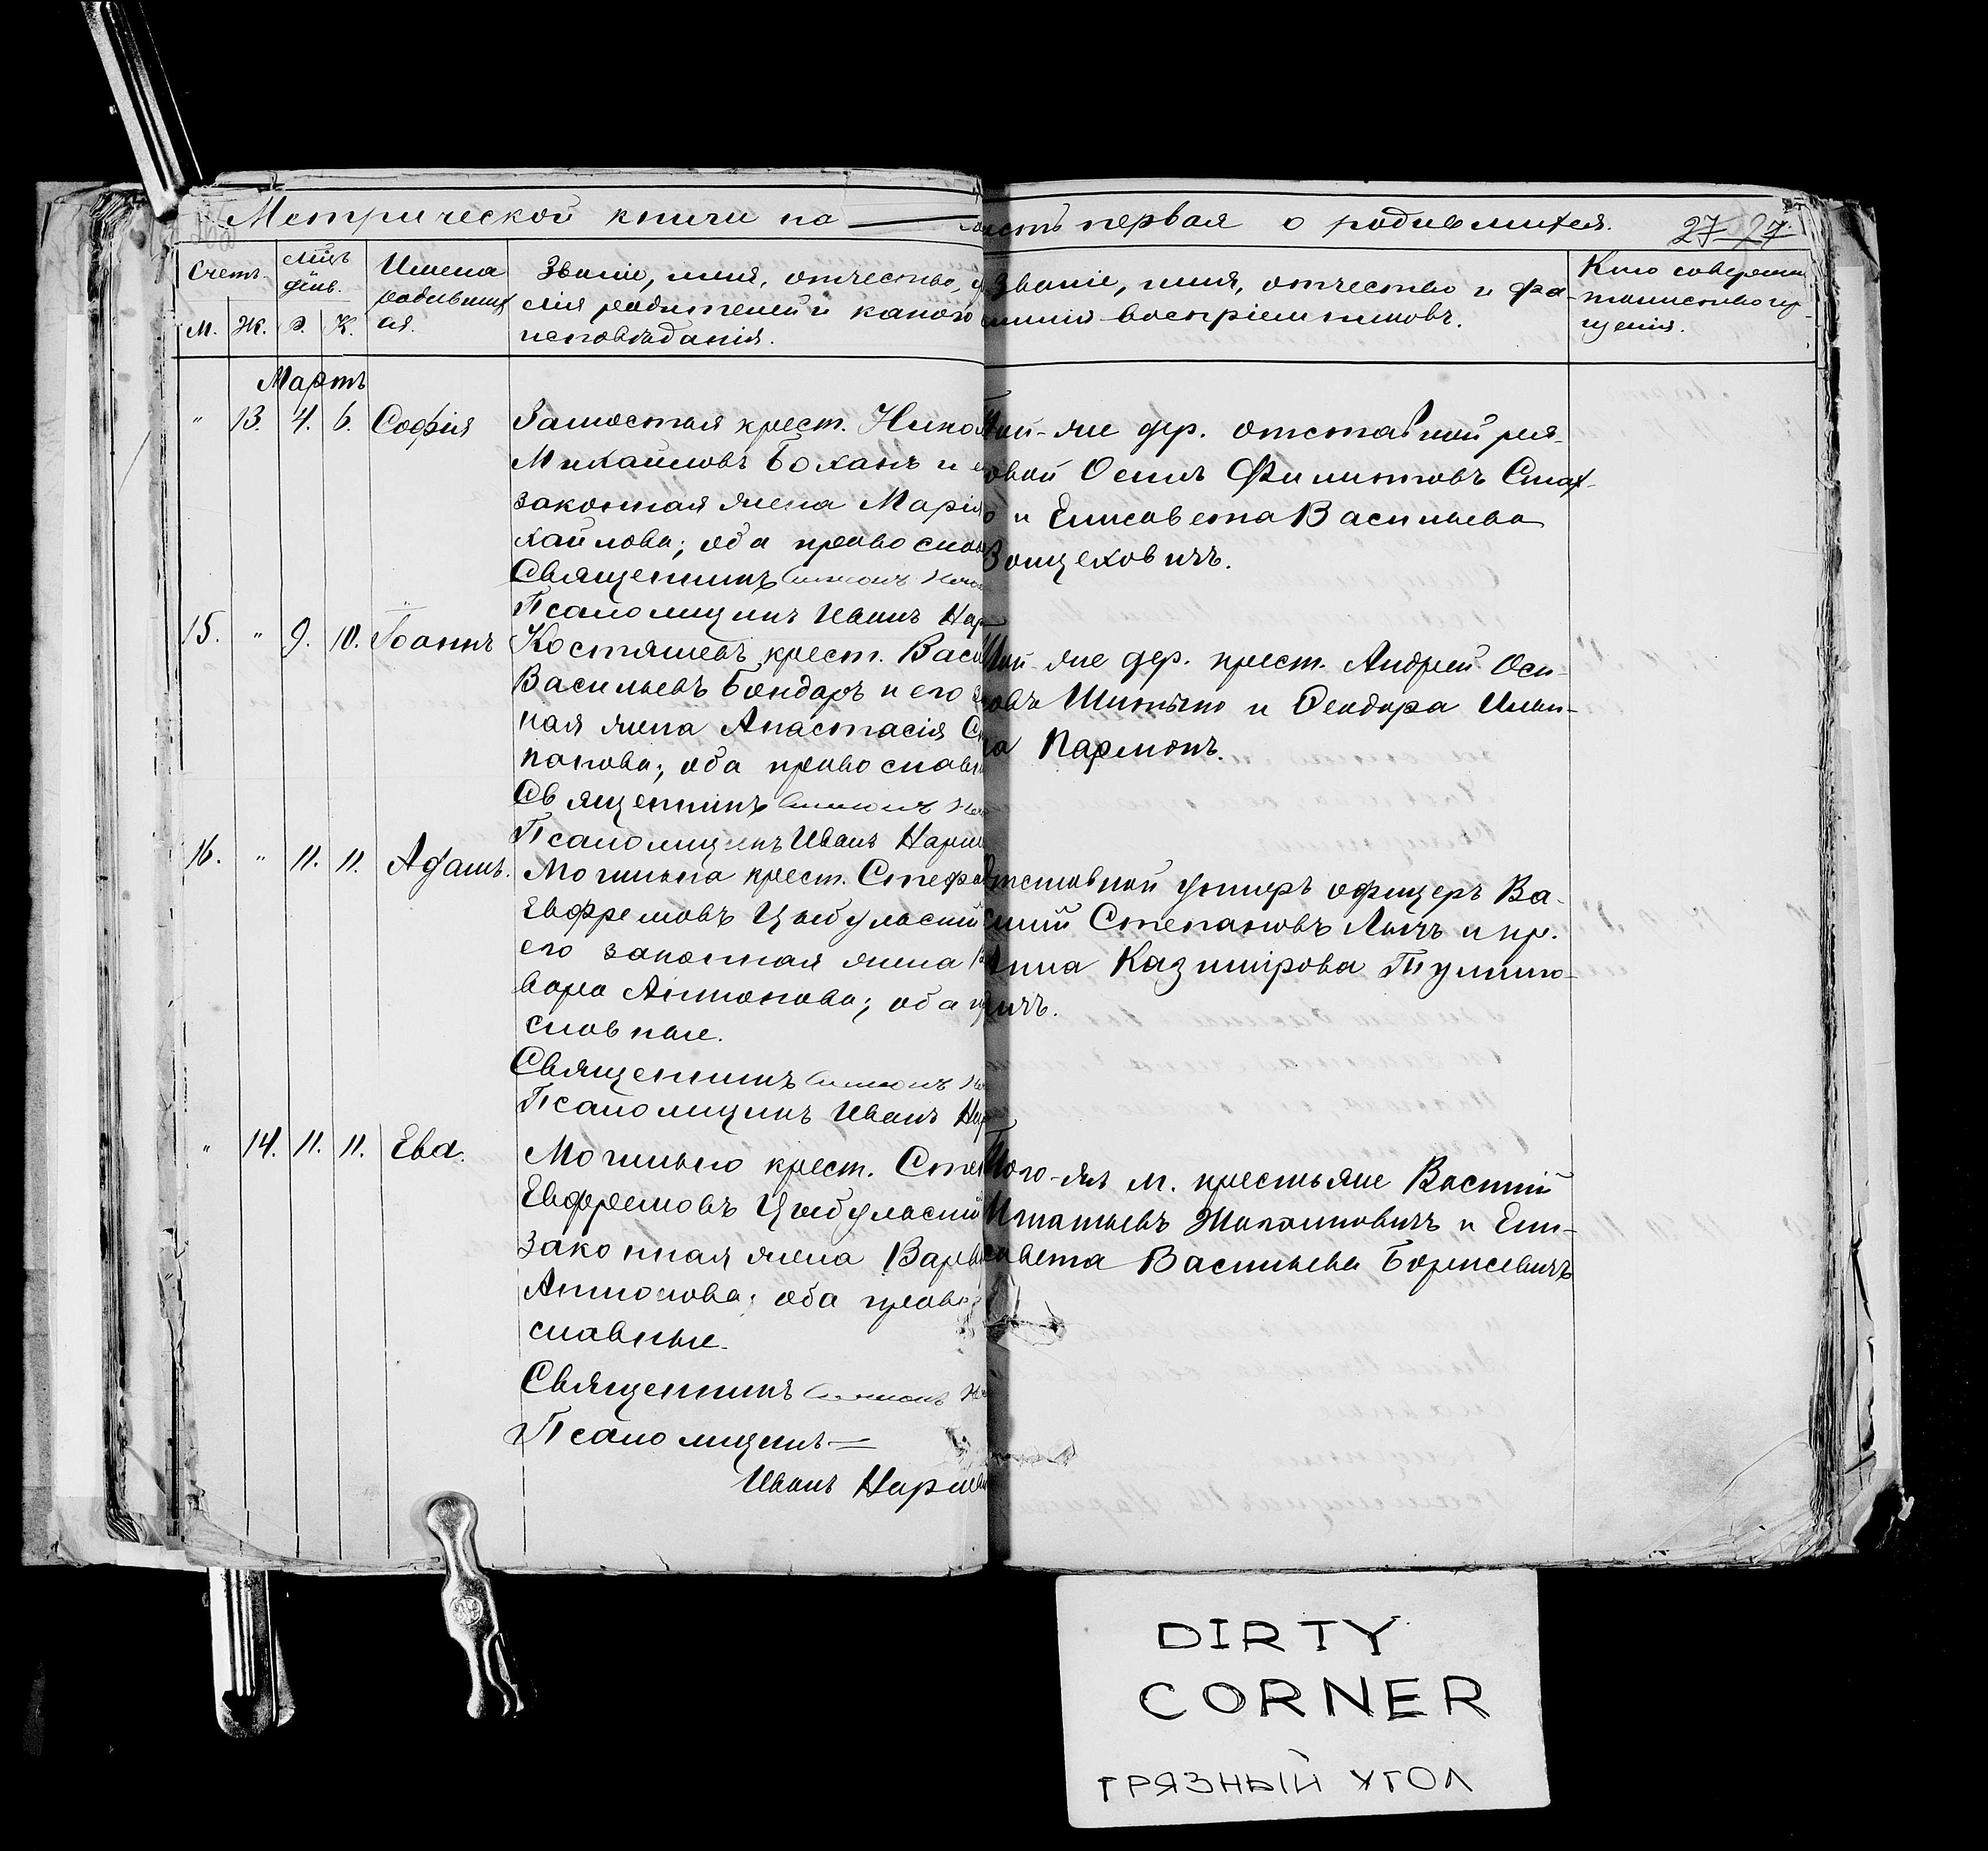 Метрической книги на
часть первая о родившихся.
27 27
Счетъ.
Мцъ
днь.
Имена
родивших
ся.
Званіе, имя, отчество,
лія родителей и какого
исповѣданія.
М. Ж. Р. К.
Званіе, имя, отчество и фа-
милія воспріемниковъ.
Кто соверши
таинство кр
щенія.
Мартъ
" 13. 4. 6. Софія
Замостья крест. Никол
Михайловъ Боханъ и
законная жена Марія
хайлова; оба правослов
Священникъ
Псаломщикъ Иванъ Нар
Той-же дер. отставной ря-
довой Осипъ Филиповъ Стах-
о и Елисавета Васильева
Войцеховичъ.
15. " 9. 10. Іоаннъ
Костяшевъ крест. Васи
Васильевъ Бондарь и его з
ная жена Анастасія С
панова; оба православн
Священникъ
Псаломщикъ Иванъ Нарке
Той-же дер. крест. Андрей Оси-
повъ Шитько и Ѳеодора Ильи-
на Пармонъ.
16. " 11. 11. Адамъ.
Могильна крест. Стефа
Евфремовъ Цыбульскій
его законная жена В
вара Антонова; оба п
славные.
Священникъ
Псаломщикъ Иванъ Нар
Отставной унтеръ офицеръ Ва-
силій Степановъ Лычъ и кр.
Анна Казимірова Тумило-
вичъ.
" 14. 11. 11. Ева.
Могильно крест. Стеф
Евфремовъ Цыбульскій
законная жена Варва
Антонова; оба право
славные.
Священникъ
Псаломщикъ
Иванъ Нарке
Того-же м. крестьяне Василій
Игнатьевъ Жилановичъ и Ели-
савета Васильева Борисевичъ
DIRTY
CORNER
ГРЯЗНЫЙ УГОЛ